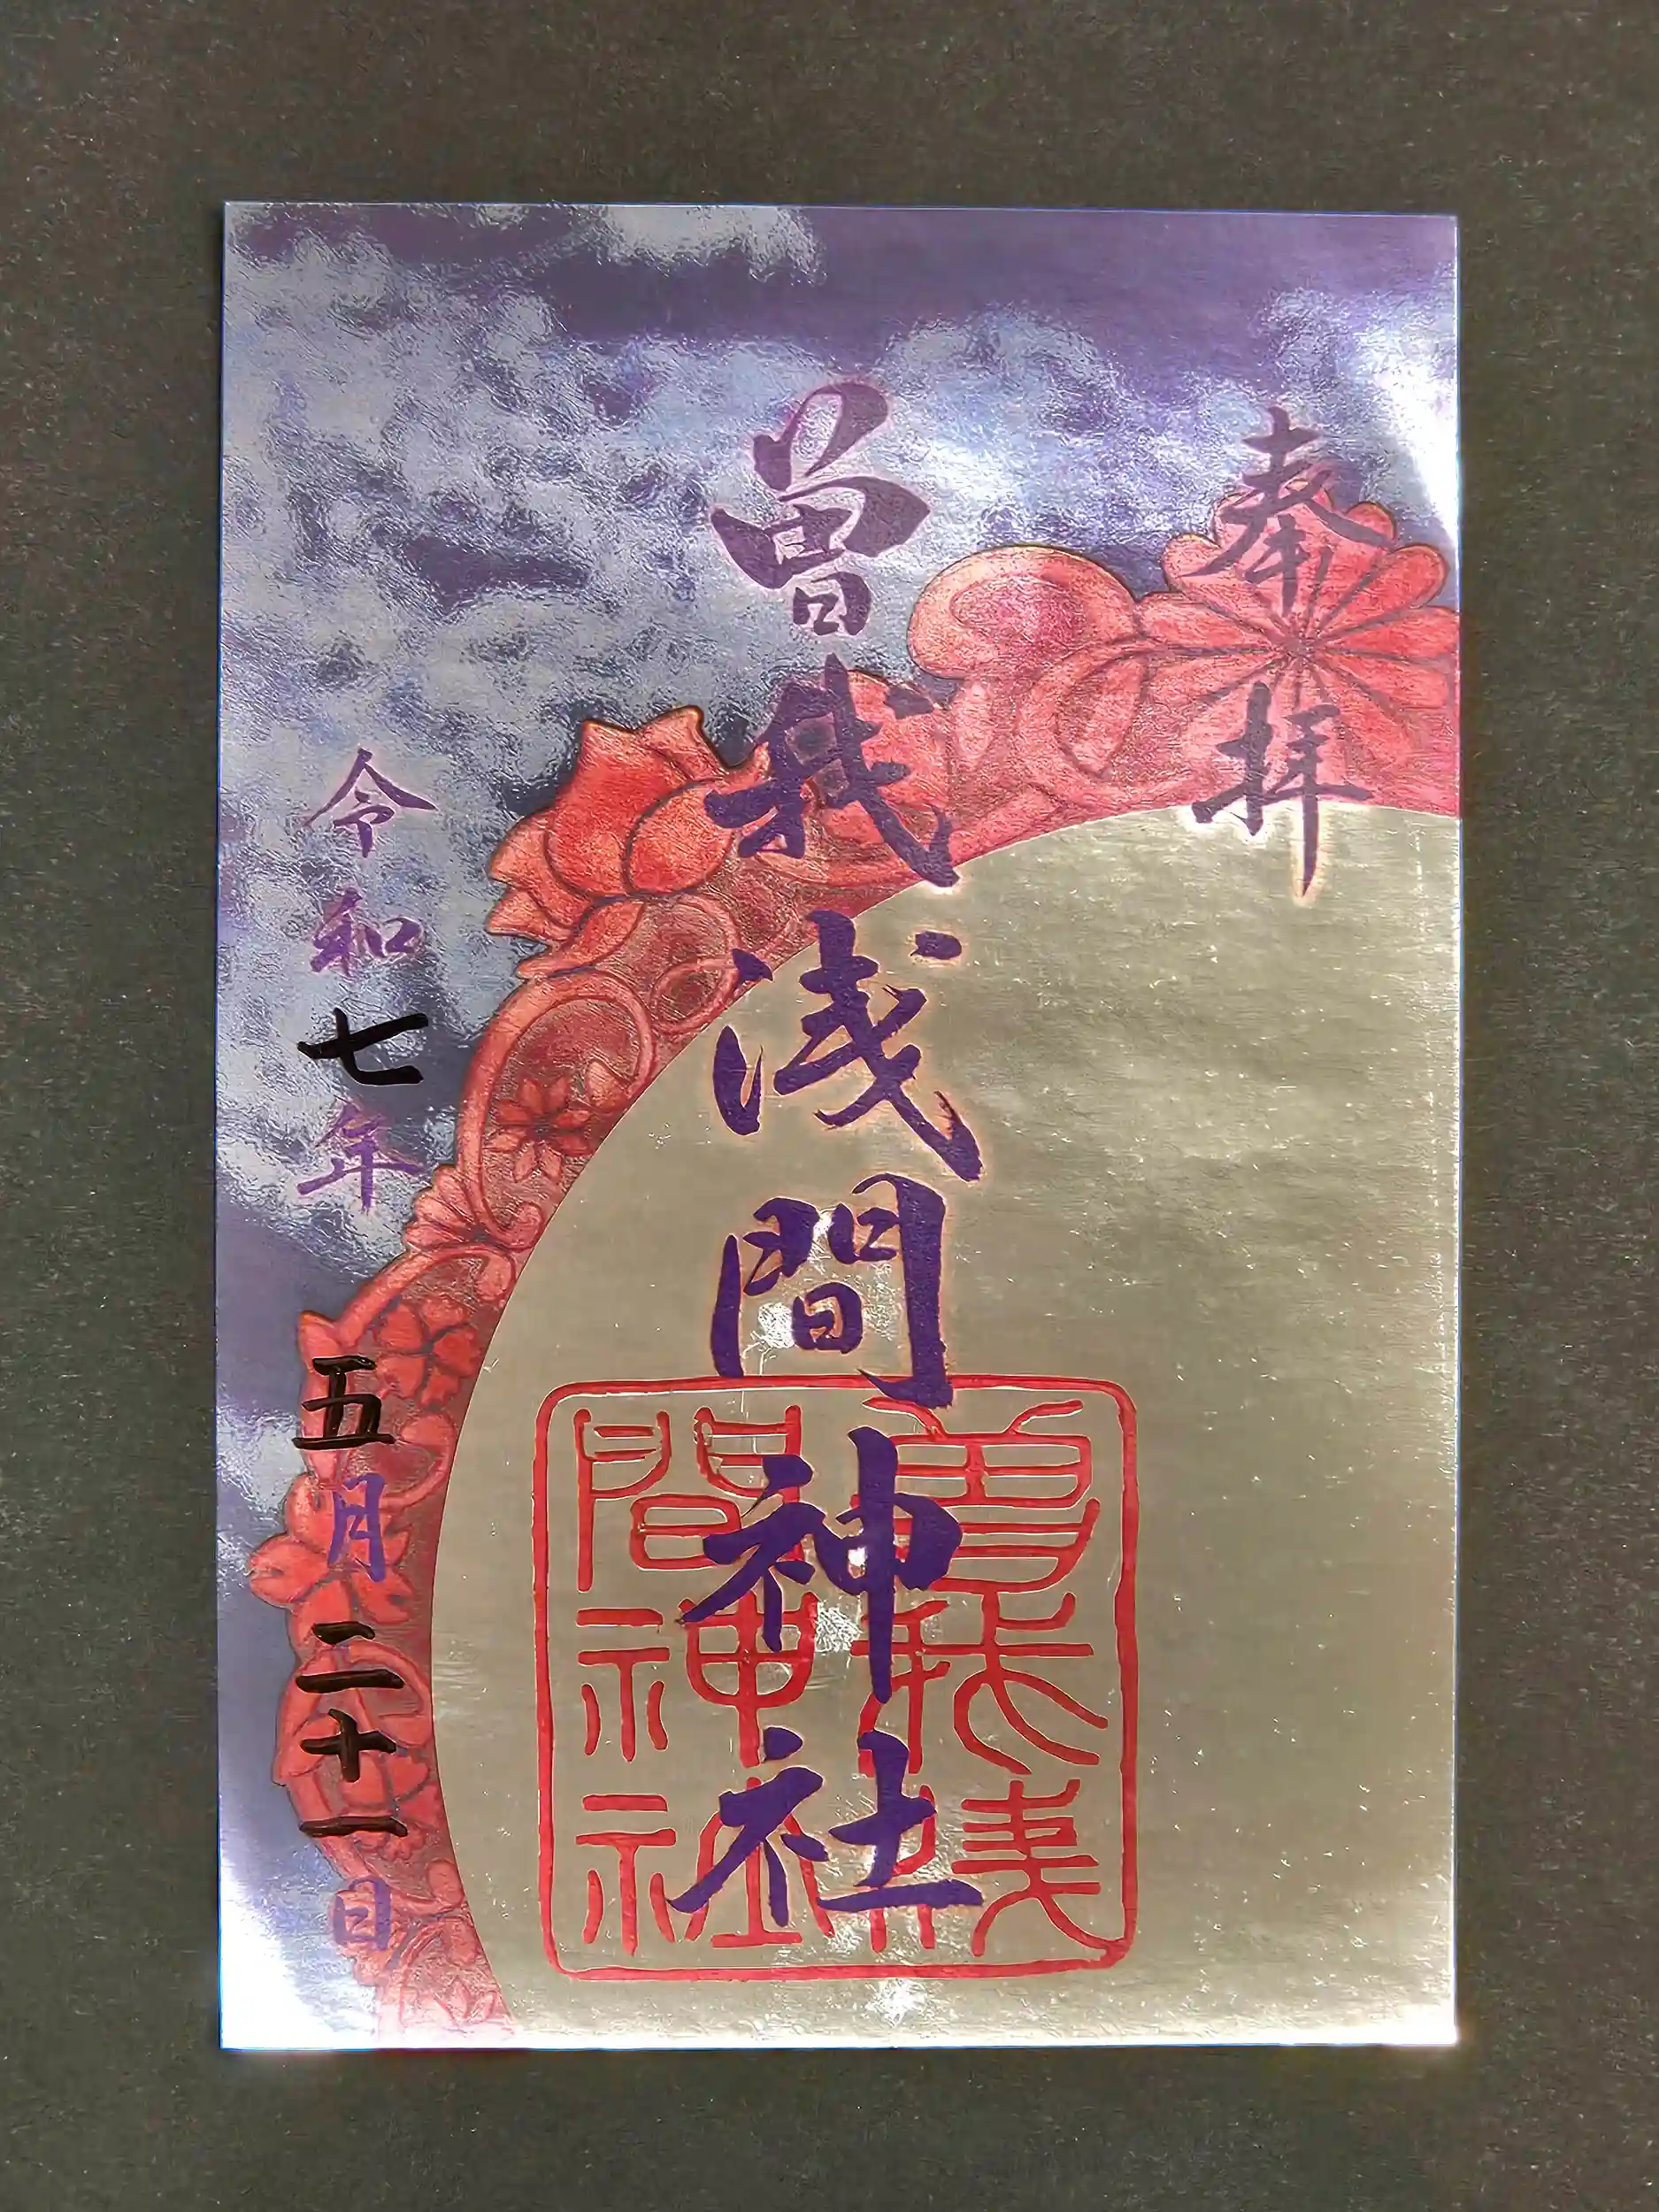 奉拝
曽我浅間神社
令和七年五月二十一日
曽我浅
間神社